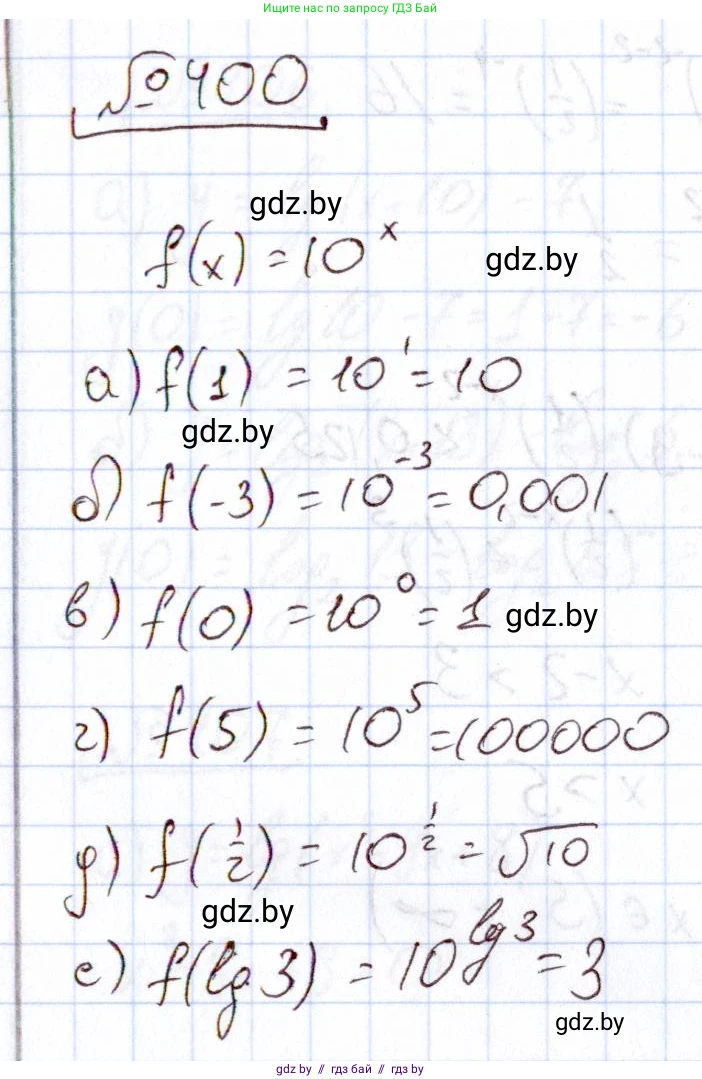 Ищите нас по запросу ГДЗ Бай
№ 400
gdz.by
f(x) = 10^x
gdz.by
а) f(1) = 10^1 = 10
gdz.by
б) f(-3) = 10^-3 = 0,001
в) f(0) = 10^0 = 1
gdz.by
г) f(5) = 10^5 = 100000
д) f(1/2) = 10^1/2 = √10
gdz.by
е) f(lg 3) = 10^lg 3 = 3
gdz.by
gdz.by // гдз бай // гдз by